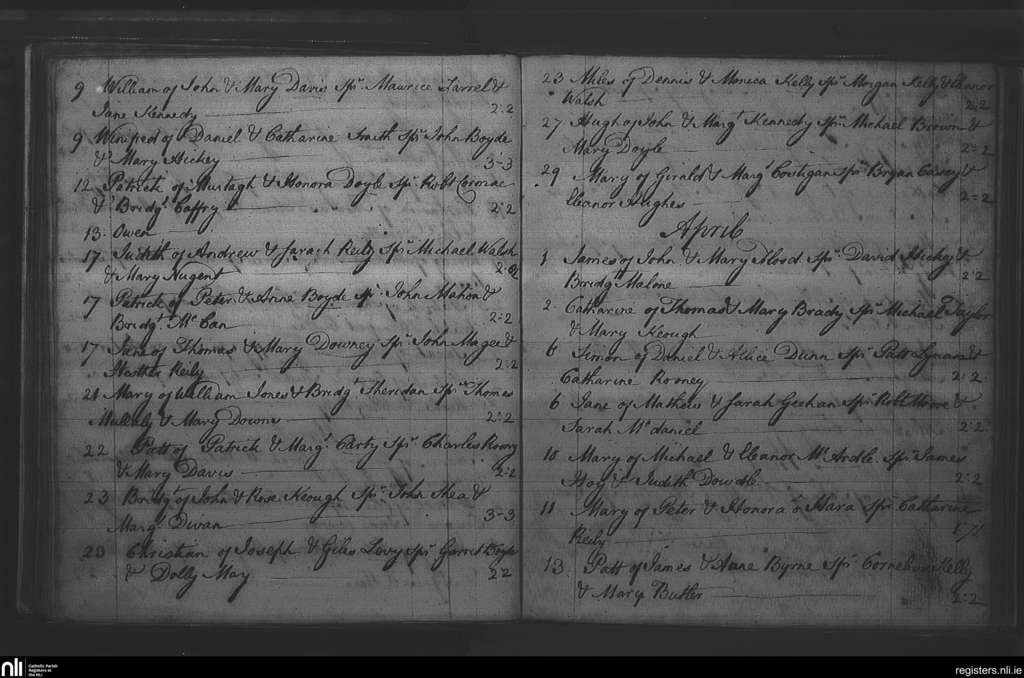 9 William of John & Mary Davis Sprs. Maurice Farrel &
Jane Kennedy 2:2
9 Winifred of Daniel & Catharine Smith Sprs John Boyde
& Mary Hickey 3-3
12 Patrick of Murtagh & Honora Doyle Sprs Robt
& Bridgt. Caffry 2:2
13. Owen
17. Judith of Andrew & Sarah Reily Sprs Michael Walsh
& Mary Nugent 2:2
17 Patrick of Peter & Anne Boyde Sprs. John Mahon &
Bridgt. McCan 2:2
17 Jane of Thomas & Mary Downey Sprs John Magee &
Hesther Reily 2:2
21 Mary of William Jones & Bridgt Sheridan Sprs Thomas
Mullaly & Mary Downs 2:2
22 Patt of Patrick & Margt. Carty Sprs. Charles
& Mary Davis 2:2
23 Bridgt of John & Rose Keough Sprs. John Shea &
Margt. Dwan 3-3
23 Christian of Joseph & Giles Levy Sprs Garret Doyle
& Dolly May 2 2
23 Miles of Dennis & Monica Kelly Sprs. Morgan Kelly & Eleanor
Walsh 2:2
27 Hugh of John & Margt Kennedy Sprs Michael Brown &
Mary Doyle 2=2
29 Mary of Girald & Margt Costigan Sprs Bryan Casey &
Eleanor Hughes 2=2
April
1 James of John & Mary Flood Sprs. David Hickey &
Bridgt Malone 2:2
2. Catharine of Thomas & Mary Brady Sprs Michael Taylor
& Mary Keough
6 Simon of Daniel & Allice Dunn Sprs Patt &
Catharine Rooney 2:2
6 Jane of Mathew & Sarah Geehan Sprs Robt &
Sarah McDaniel 2:2
10 Mary of Michael & Eleanor McArdle Sprs James
Hoy & Judith Dowdle 2:2
11 Mary of Peter & Honora o Hara Spr Catharine
Reily
13. Patt of James & Anne Byrne Sprs. Cornelius Kelly
& Mary Butler 2:2
nli
Catholic Parish
Registers at
the NLI
registers.nli.ie